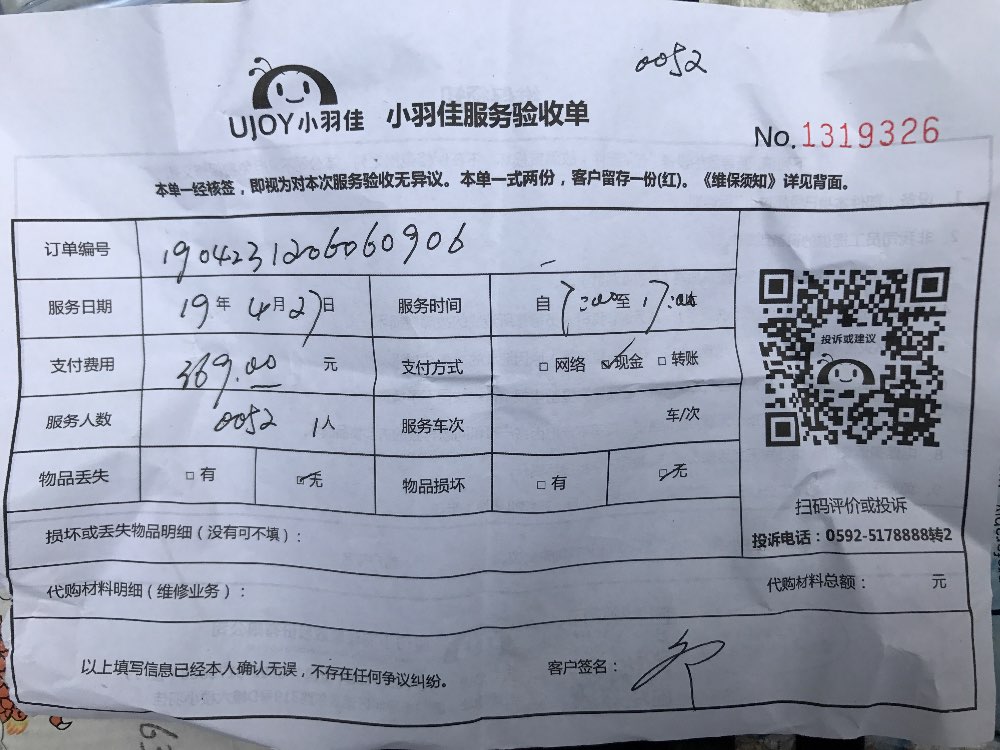 0052
UJOY小羽佳 小羽佳服务验收单
No. 1319326
本单一经核签，即视为对本次服务验收无异议。本单一式两份，客户留存一份(红)。《维保须知》详见背面。
订单编号 190423120606090​6
服务日期 19年4月27日 服务时间 自7:00至17:00
支付费用 369.00 元 支付方式 □网络 ☑现金 □转账
服务人数 0052 1人 服务车次 车/次
物品丢失 □有 ☑无 物品损坏 □有 ☑无
投诉或建议
扫码评价或投诉
投诉电话：0592-5178888转2
损坏或丢失物品明细（没有可不填）：
代购材料明细（维修业务）： 代购材料总额： 元
以上填写信息已经本人确认无误，不存在任何争议纠纷。 客户签名：